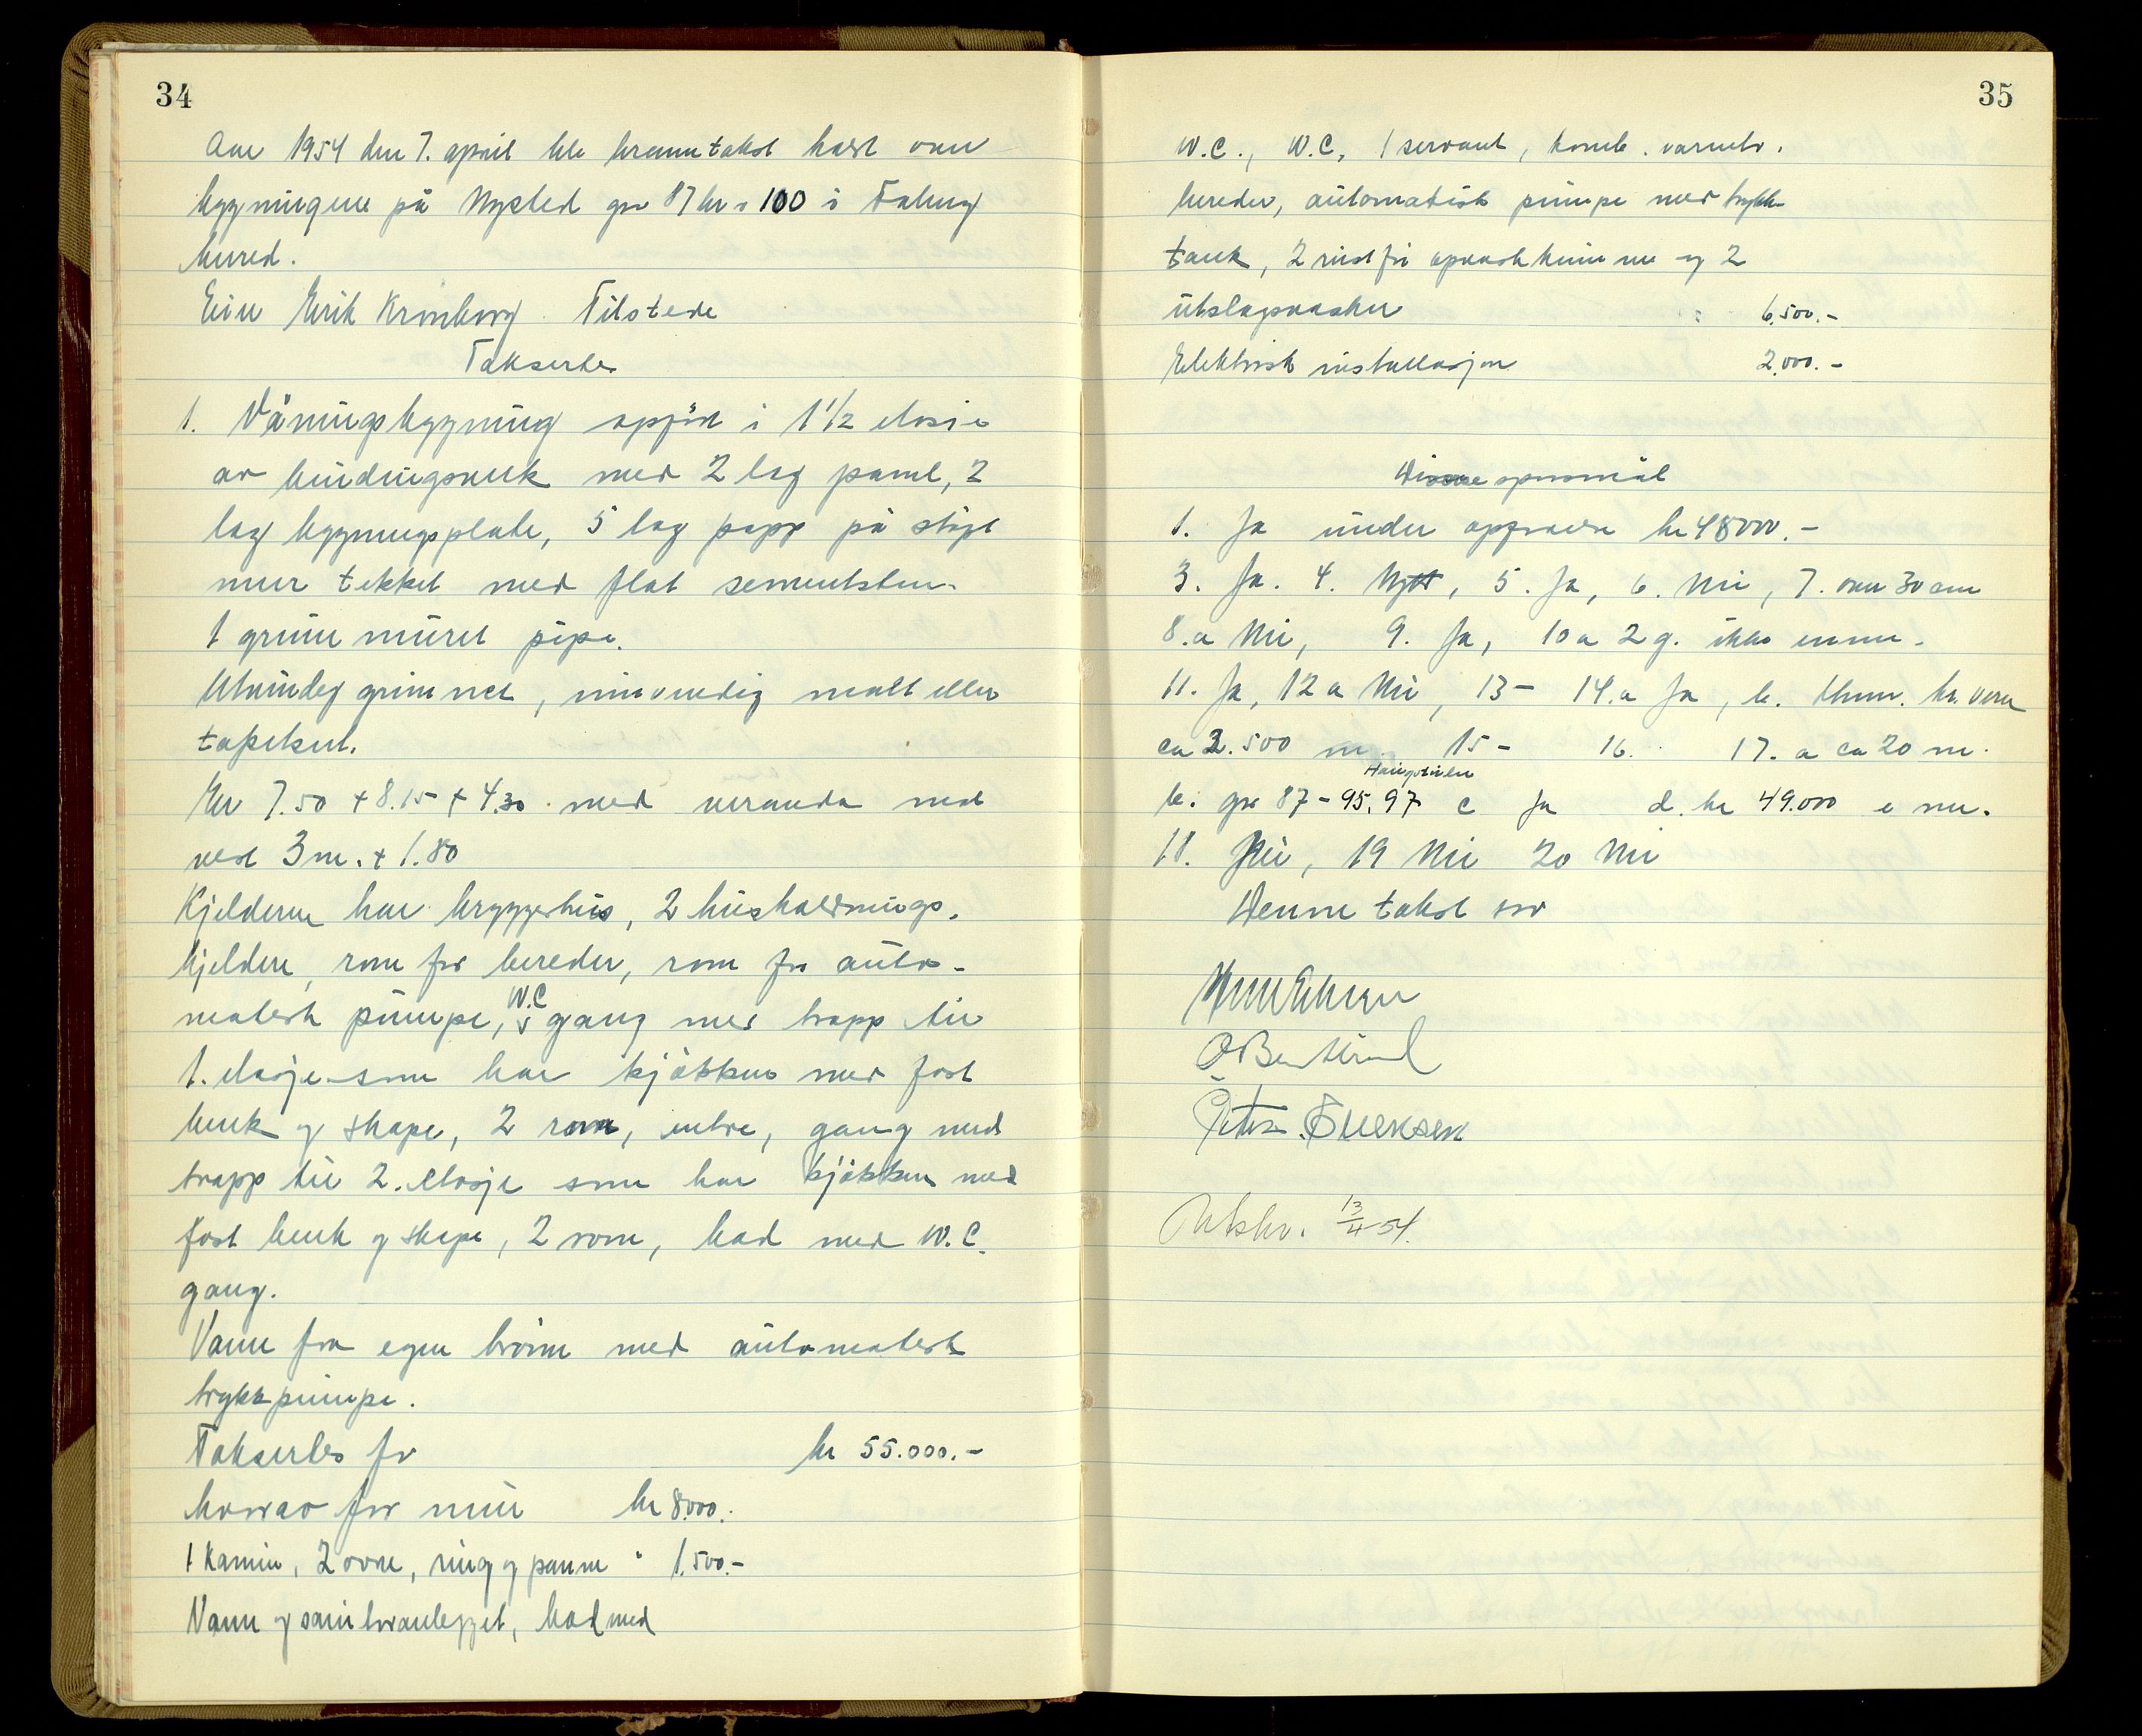 34
Aar 1954 den 7. april ble branntakst holdt over
bygningene på Nysted gr 87 br n 100 i Fabury
hered.
Eier Erik Kronborg Tilstede
Takserte
1. Våningsbygning oppført i 1 1/2 etasje
av bindingsverk med 2 lag panel, 2
lag bygningsplate, 5 lag papp på støpt
mur tekket med flat sementsten.
1 grunnmuret pipe.
Utvindig grunnet, innvendig malt eller
tapetsert.
Er 7.50 + 8.15 + 4.30 med veranda mot
vest 3 m. + 1.80
Kjelderen har bryggerhus, 2 husholdnings-
kjeldere, rom for bereder, rom for auto-
matisk pumpe, W.C gang med trapp til
1. etasje som har kjøkken med fast
benk og skape, 2 rom, entre, gang med
trapp til 2. etasje som har kjøkken med
fast benk og skape, 2 rom, bad med W.C.
gang.
Vann fra egen brønn med automatisk
trykkpumpe.
Takseres for kr 55.000.-
hvorav for mur kr 8.000.-
1 Kamin, 2 ovne, ring og panne " 1.500.-
Vann og sanitæranlegget, bad med
35
W.C., W.C, 1 servant, komb. varmtv.
bereder, automatisk pumpe med trykk-
tank, 2 rustfri oppvaskkummer og 2
utslagsvasker : 6.500.-
Elektrisk installasjon 2.000.-
Disse spørsmål
1. Ja under oppførelse kr 48000.-
3. Ja. 4. Nytt, 5. Ja, 6. Nei, 7. over 30 cm
8.a Nei, 9. Ja, 10 a 2 g. ikke ennu.
11. Ja, 12 a Nei, 13- 14.a Ja, b. br. vern
ca 2.500 m. 15- 16. 17. a ca 20 m.
Haugstulen
b. gr 87 - 95, 97 c Ja d. kr 49.000 e nei.
18. Nei, 19 Nei 20 Nei
Denne takst
Utskr. 13/4-54.